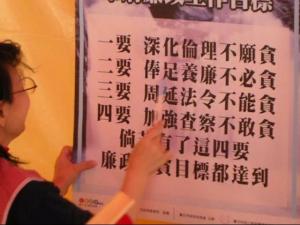 工作目標
一要 深化倫理不願貪
二要 俸足養廉不必貪
三要 周延法令不能貪
四要 加強查察不敢貪
倘 有了這四要
廉政 貪目標都達到